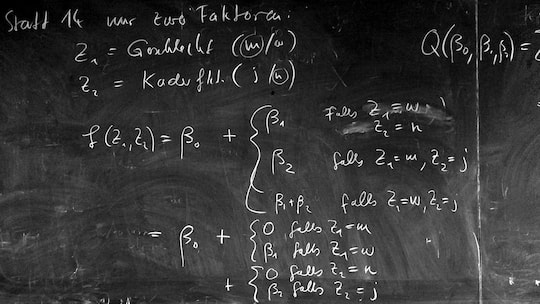 Statt 14 nur zwei Faktoren:
Z₁ = Geschlecht (m/w)
Z₂ = (j/n)
Q(β₀, β₁, β₂) =
f(Z₁, Z₂) = β₀ + { β₁ falls Z₁ = w, Z₂ = n
β₂ falls Z₁ = m, Z₂ = j
β₁ + β₂ falls Z₁ = w, Z₂ = j
= β₀ + { 0 falls Z₁ = m
β₁ falls Z₁ = w
+ { 0 falls Z₂ = n
β₂ falls Z₂ = j